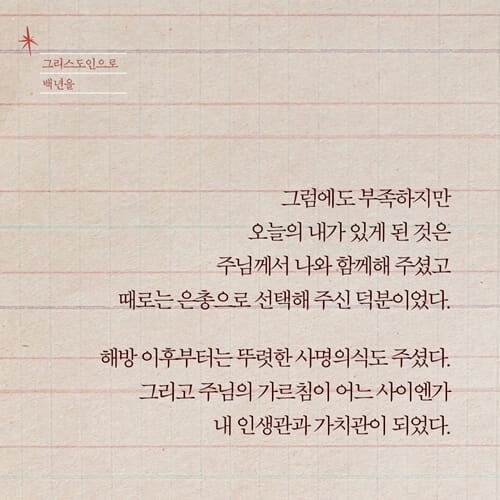 그리스도인으로
백년을
그럼에도 부족하지만
오늘의 내가 있게 된 것은
주님께서 나와 함께해 주셨고
때로는 은총으로 선택해 주신 덕분이었다.
해방 이후부터는 뚜렷한 사명의식도 주셨다.
그리고 주님의 가르침이 어느 사이엔가
내 인생관과 가치관이 되었다.